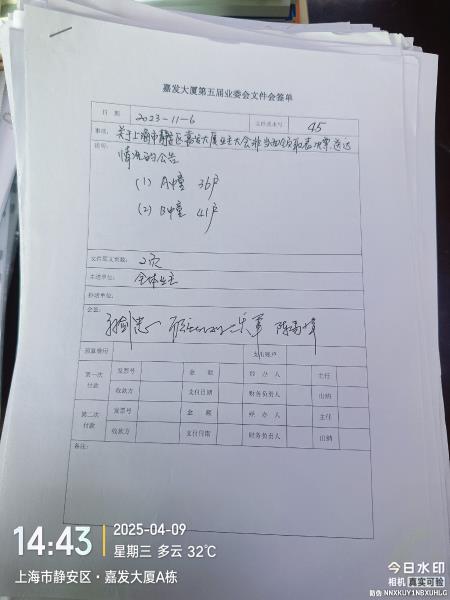 嘉发大厦第五届业委会文件会签单
日期 2023-11-6 文件流水号 45
事项: 关于上海市静安区嘉发大厦业主大会非当面领取表决票送达
说明: 情况的公告
(1) A幢 36户
(2) B幢 41户
文件原文页数: 2页
主送单位: 全体业主
抄送单位:
会签:
预算费用 支出账户
第一次付款 发票号 金额 经办人 主任
收款方 支付日期 财务负责人 出纳
第二次付款 发票号 金额 经办人 主任
收款方 支付日期 财务负责人 出纳
备注:
14:43 2025-04-09
星期三 多云 32℃
上海市静安区·嘉发大厦A栋
今日水印
相机 真实可验
防伪 NNXKUY1NBXUHLG